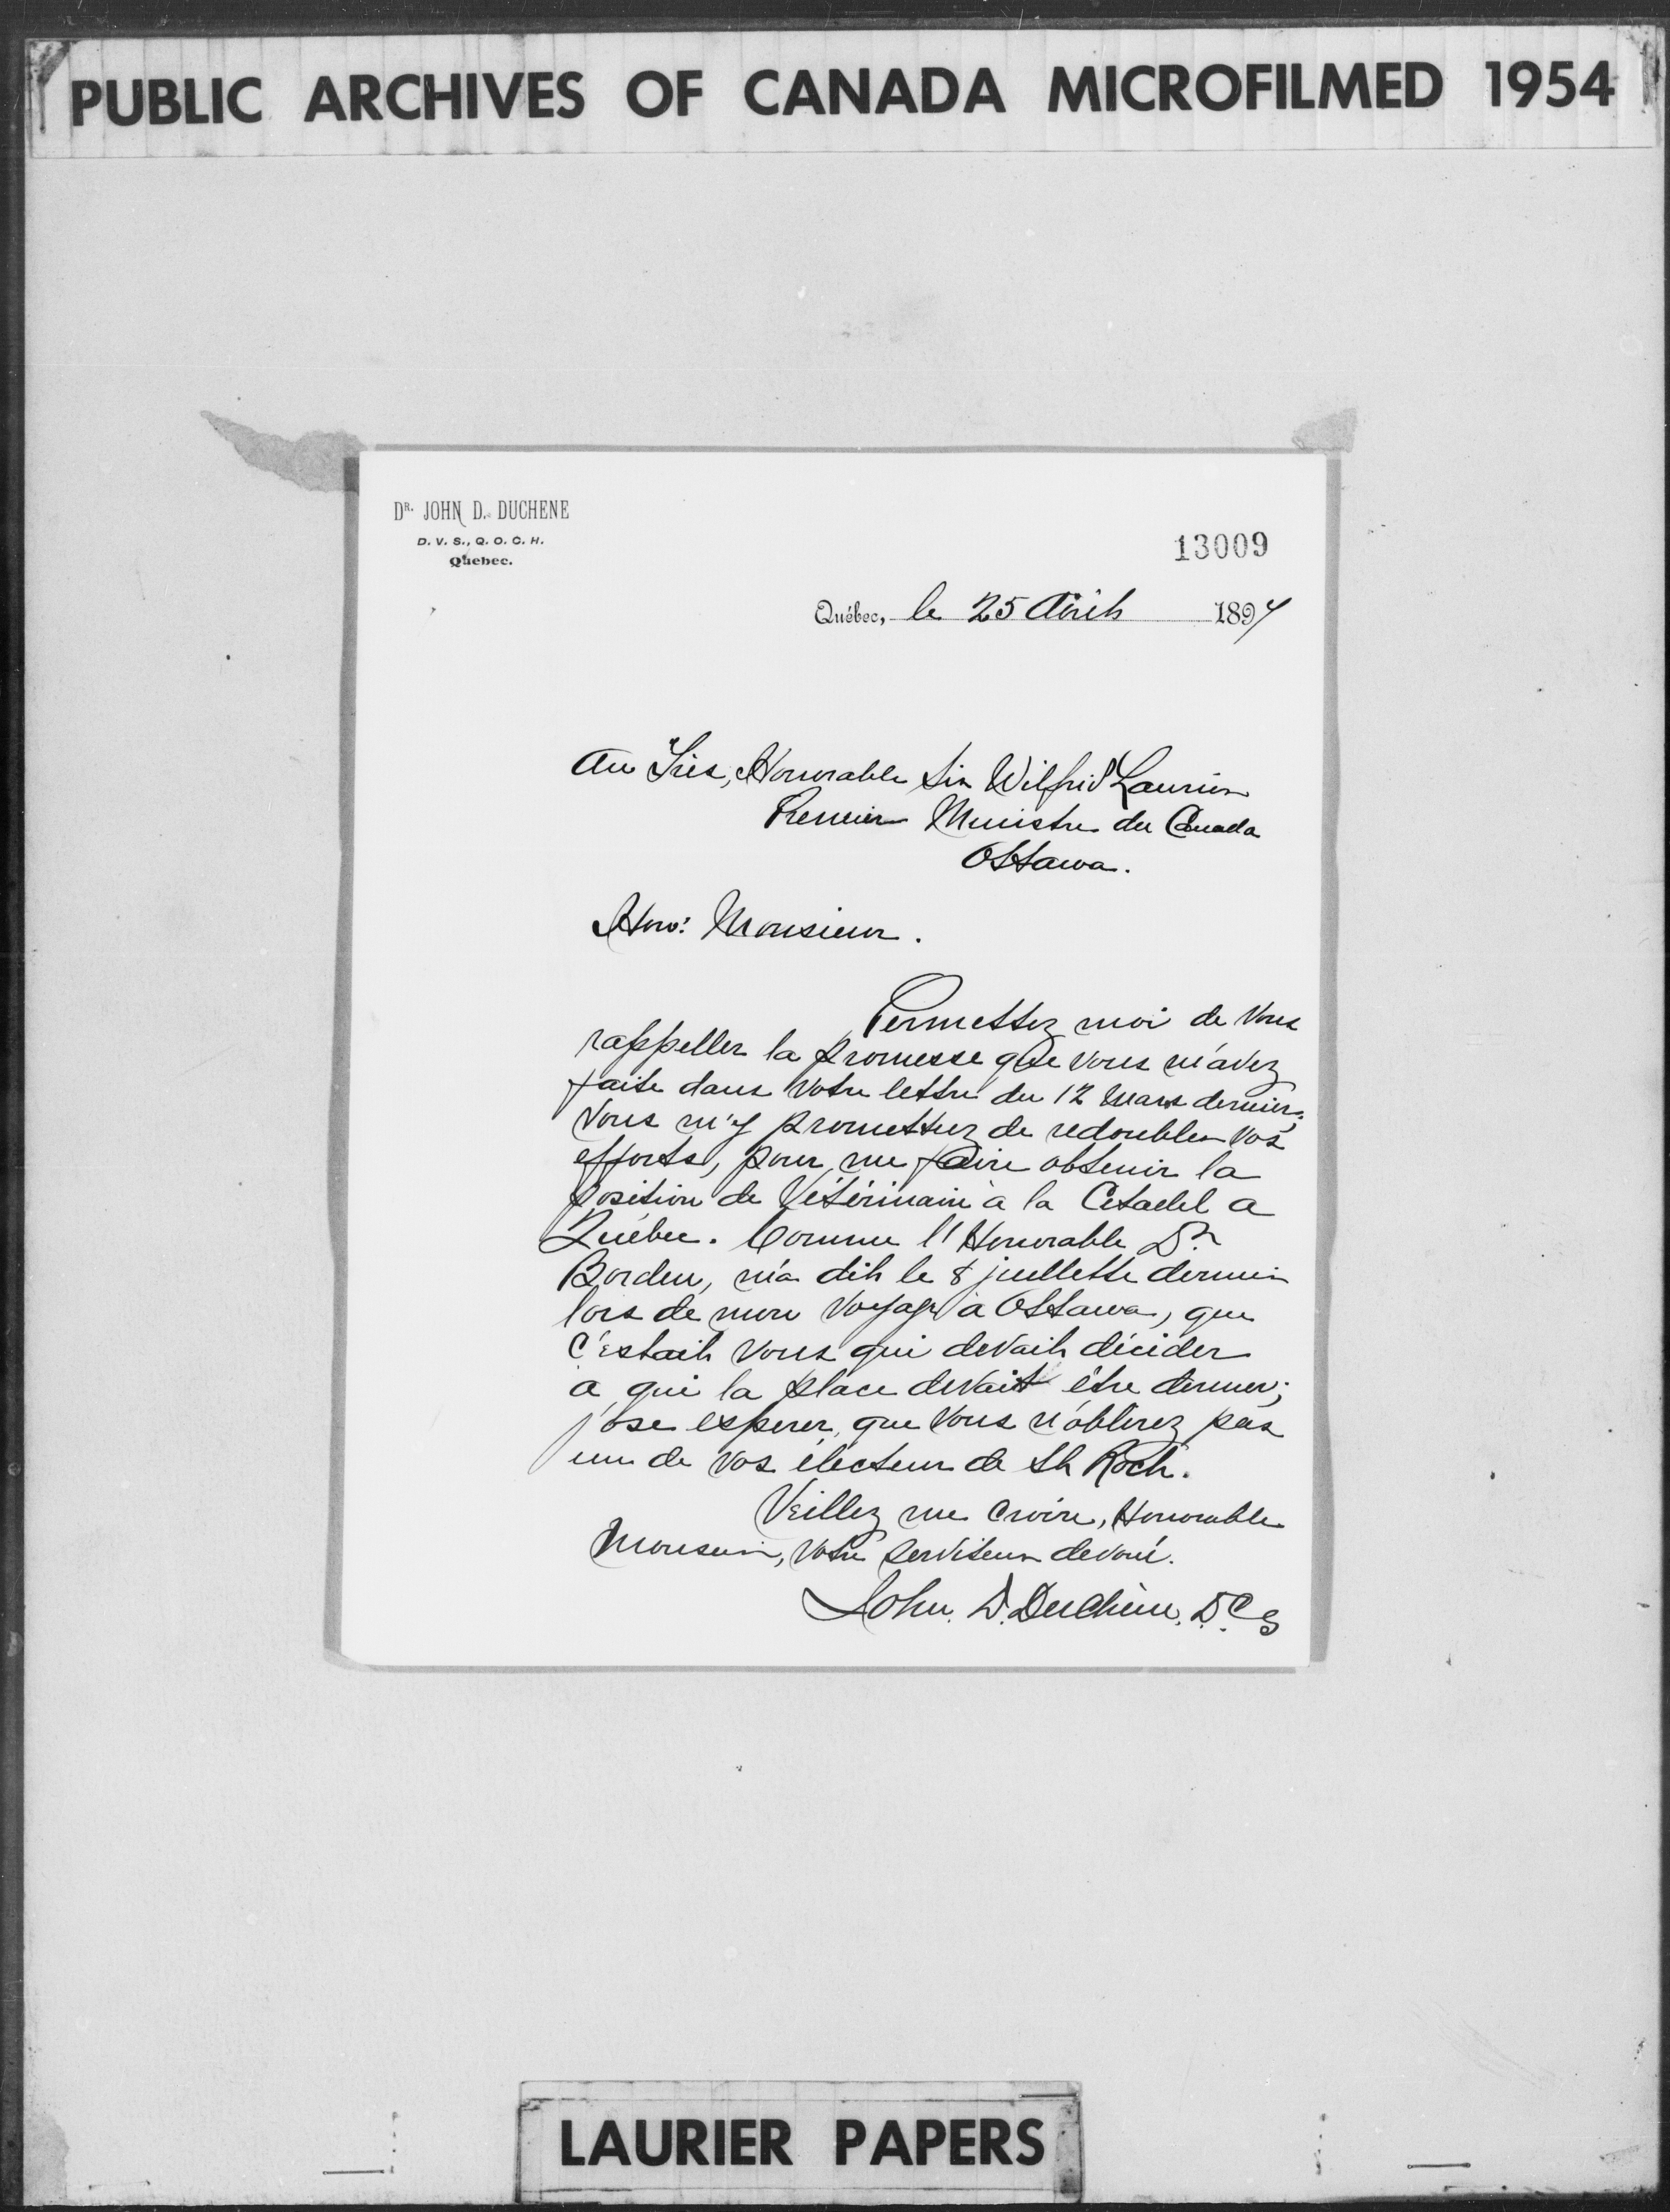 PUBLIC ARCHIVES OF CANADA MICROFILMED 1954
DR. JOHN D. DUCHENE
D. V. S., Q. O. C. H.
Quebec.
13009
Québec, le 25 Août 1897
Au Très, Honorable Sir Wilfrid Laurier
Premier Ministre du Canada
Ottawa.
Hon: Monsieur.
Permettez moi de vous
rappeller la promesse que vous m'avez
faite dans votre lettre du 12 Mars dernier,
vous m'y promettiez de redoubler vos
efforts, pour me faire obtenir la
position de Vétérinaire à la Citadel a
Québec. Comme l'Honorable Dr
Borden, m'a dit le 8 juillette dernier
lors de mon voyage à Ottawa, que
c'estait vous qui devait décider
a qui la place devait être donner;
j'ose esperer, que vous n'oblirez pas
un de vos électeur de St Roch.
Veillez me croire, Honorable
Monsieur, votre serviteur devoué.
John. D. Duchène.
LAURIER PAPERS